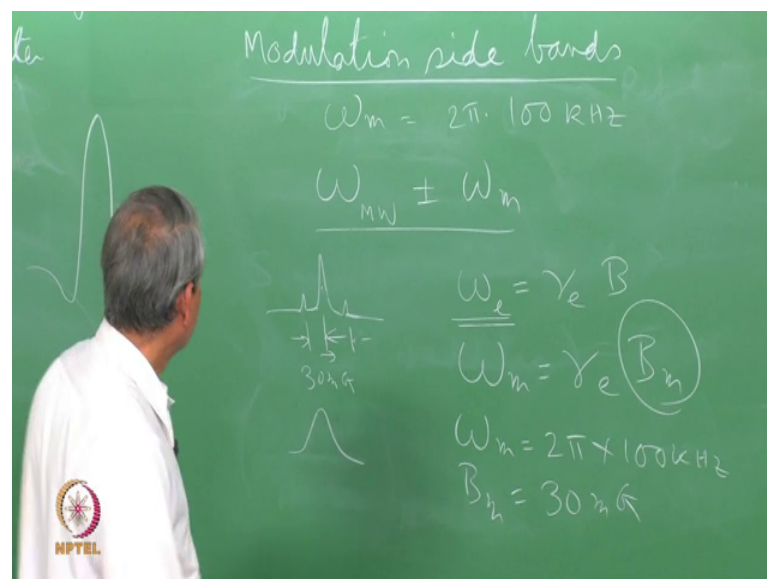 Modulation side bands
ωm = 2π· 100 KHZ
ωMW ± ωm
ωe = γe B
30mG
ωm = γe Bm
ωm = 2π × 100KHZ
Bm = 30mG
NPTEL